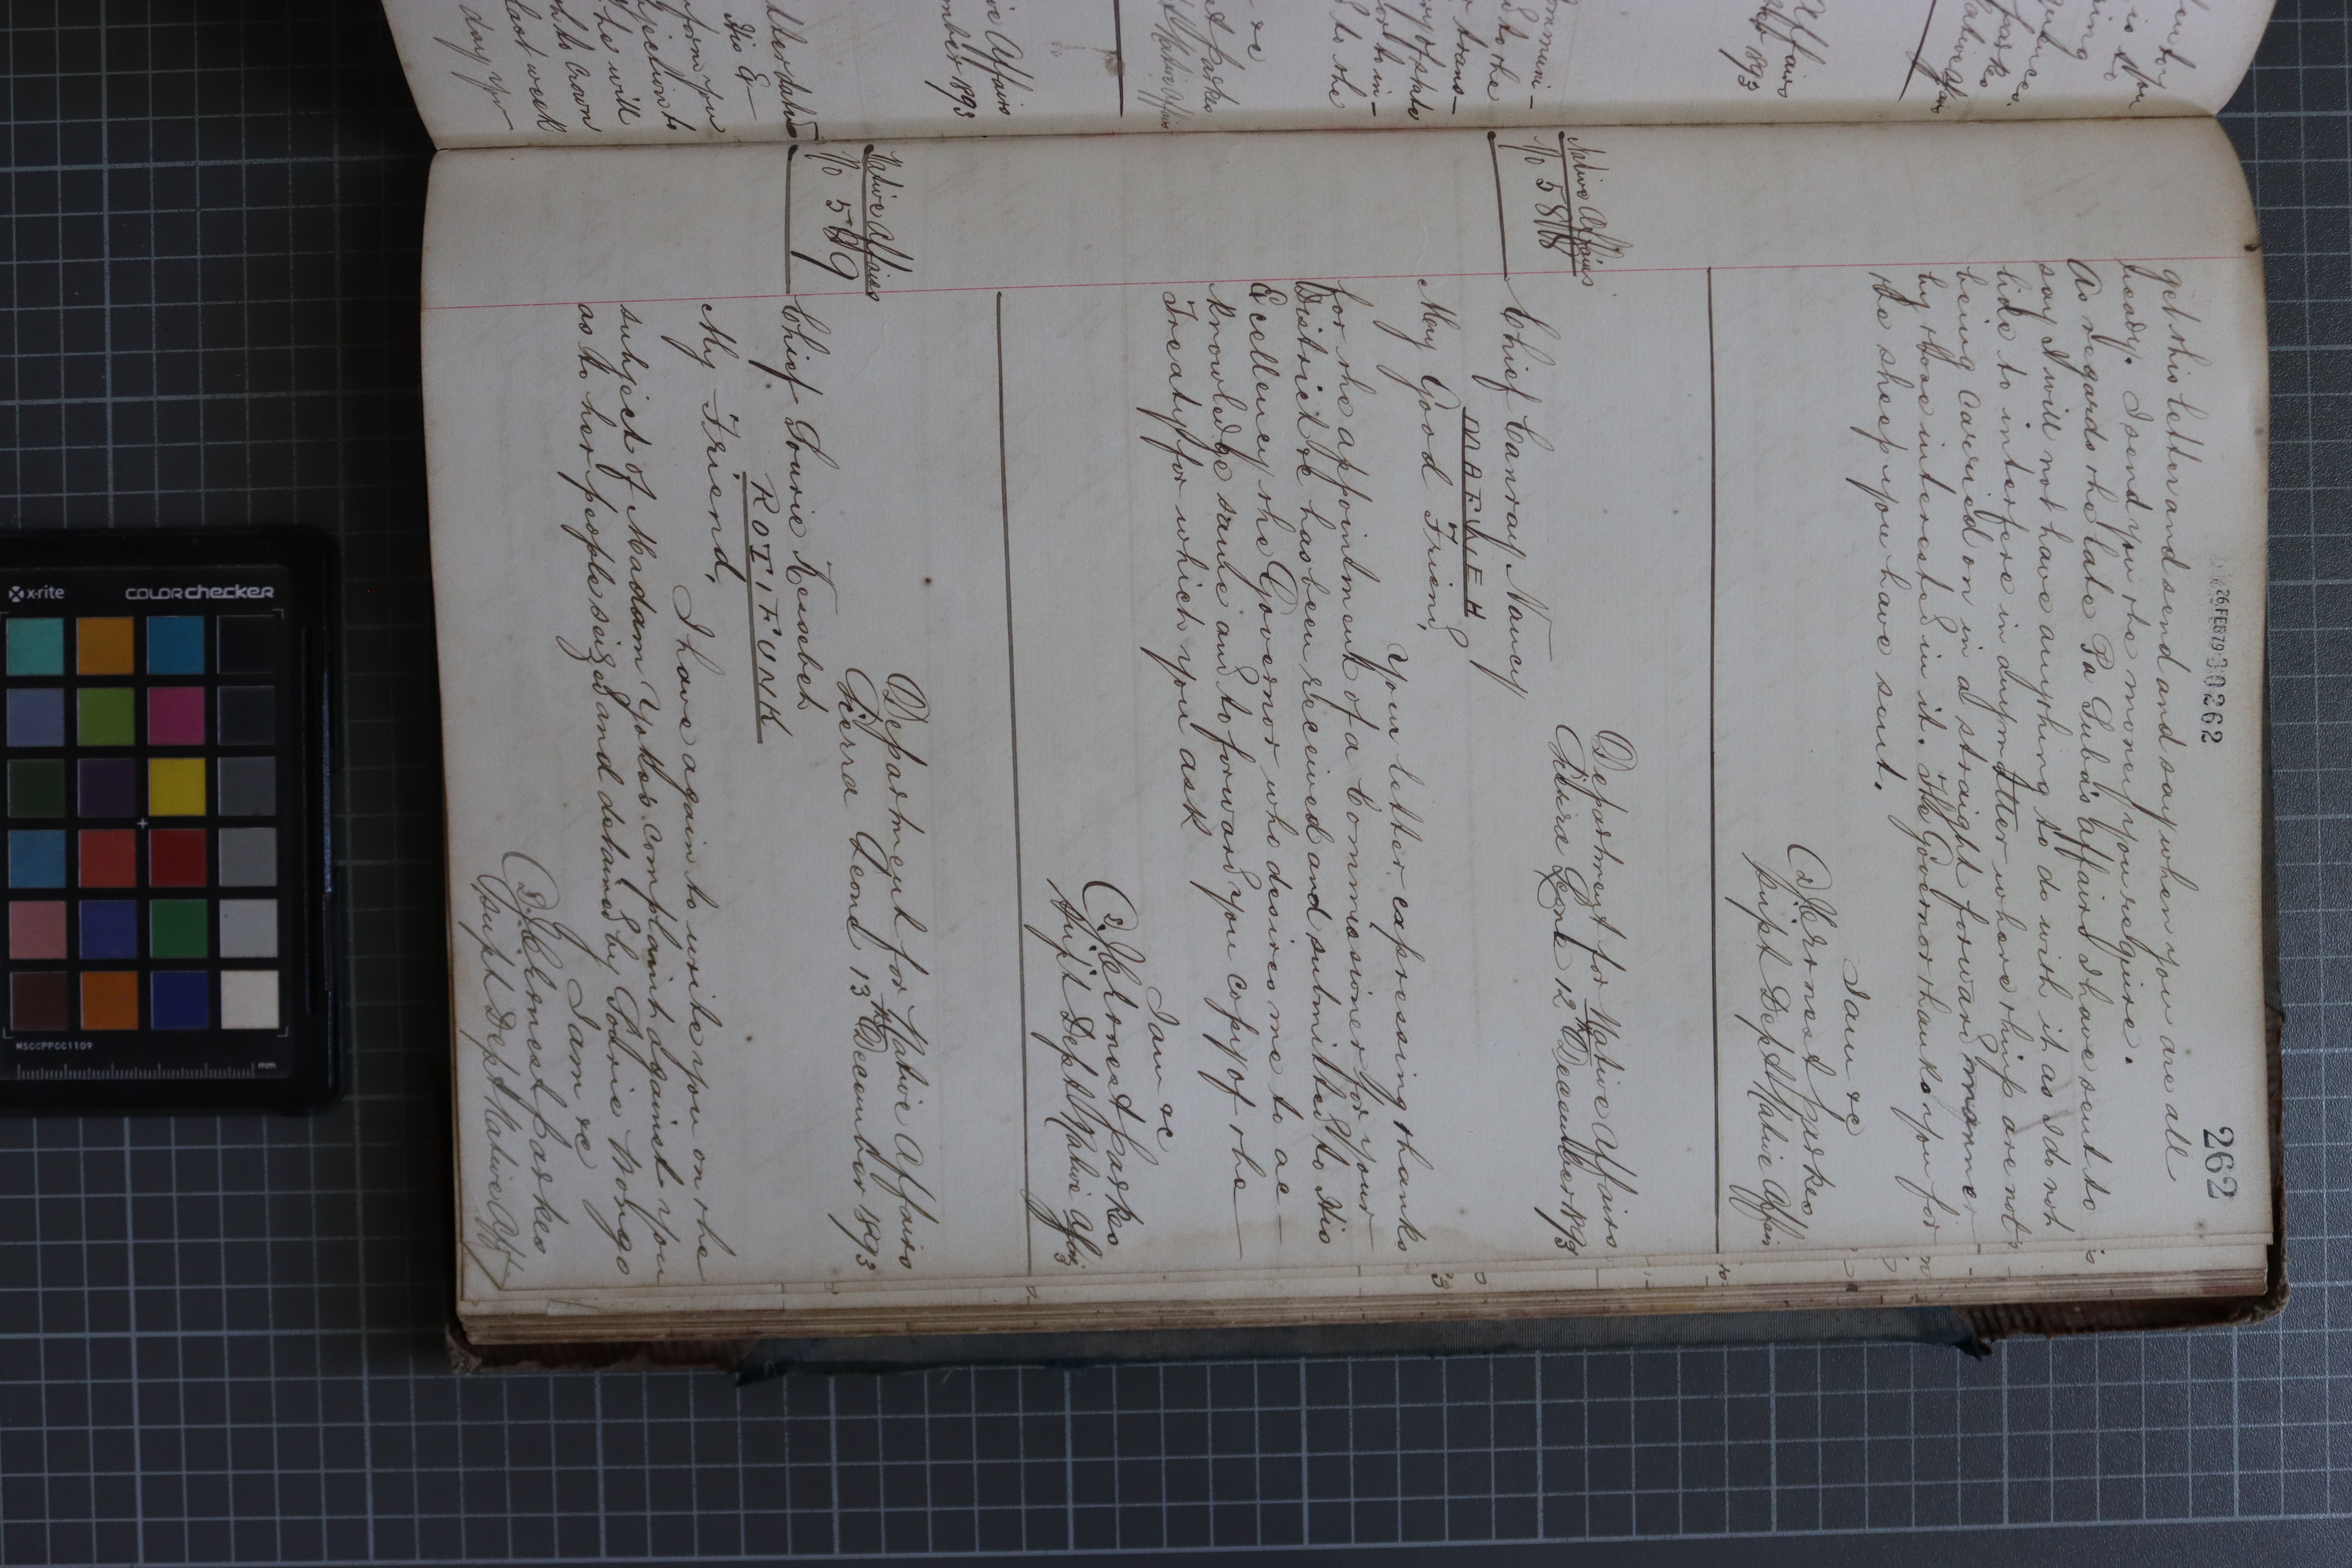 26 FEB 79 300262
262
get this letter and send and say when you are all
ready. I send you the money you require.
As regards the late Pa Suba's affairs I have sent to
say I will not have anything to do with it as I do not
like to interfere in any matter where things are not
being carried on in a straight forward manner
by those interested in it. The Governor thanks you for
the sheep you have sent.
I am &c
J. C. Ernest Parkes
Supt Dept Native Affairs
Native Affairs
No 588
Department for Native Affairs
Sierra Leone 12th December 1893
Chief Canray Nancy
MAFWEH
My Good Friend,
Your letter expressing thanks
for the appointment of a Commissioner for your
District &c has been received and submitted to His
Excellency the Governor who desires me to ac-
knowledge same and to forward you copy of the
Treaty for which you ask
I am &c
J. C. Ernest Parkes
Supt Dept Native Affairs
Native Affairs
No 589
Department for Native Affairs
Sierra Leone 13th December 1893
Chief Sourie Kessebeh
ROTIFUNK
My Friend,
I have again to write you on the
subject of Madam Yoko's complaint against you
as to her people seized and detained by Sourie Bongo
I am &c
J. C. Ernest Parkes
Supt Dept Native Aff
x-rite
colorchecker
MSCCPPCC1109
mm